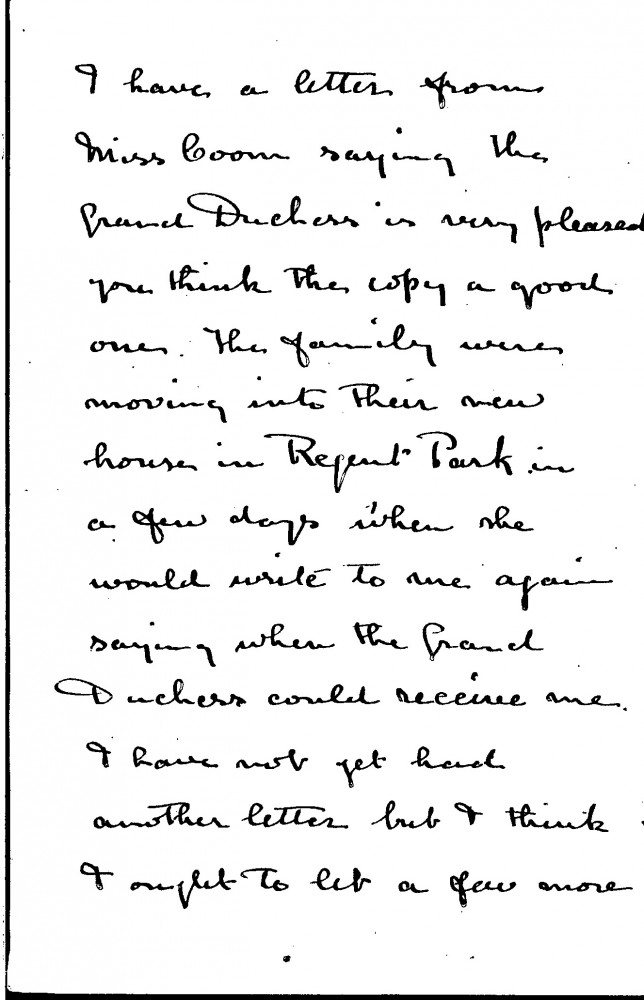 I have a letter from
Miss Coom saying the
Grand Duchess is very pleased
you think the copy a good
one. The family were
moving into their new
house in Regent Park in
a few days when she
would write to me again
saying when the Grand
Duchess could receive me.
I have not yet had
another letter but I think
I ought to let a few more